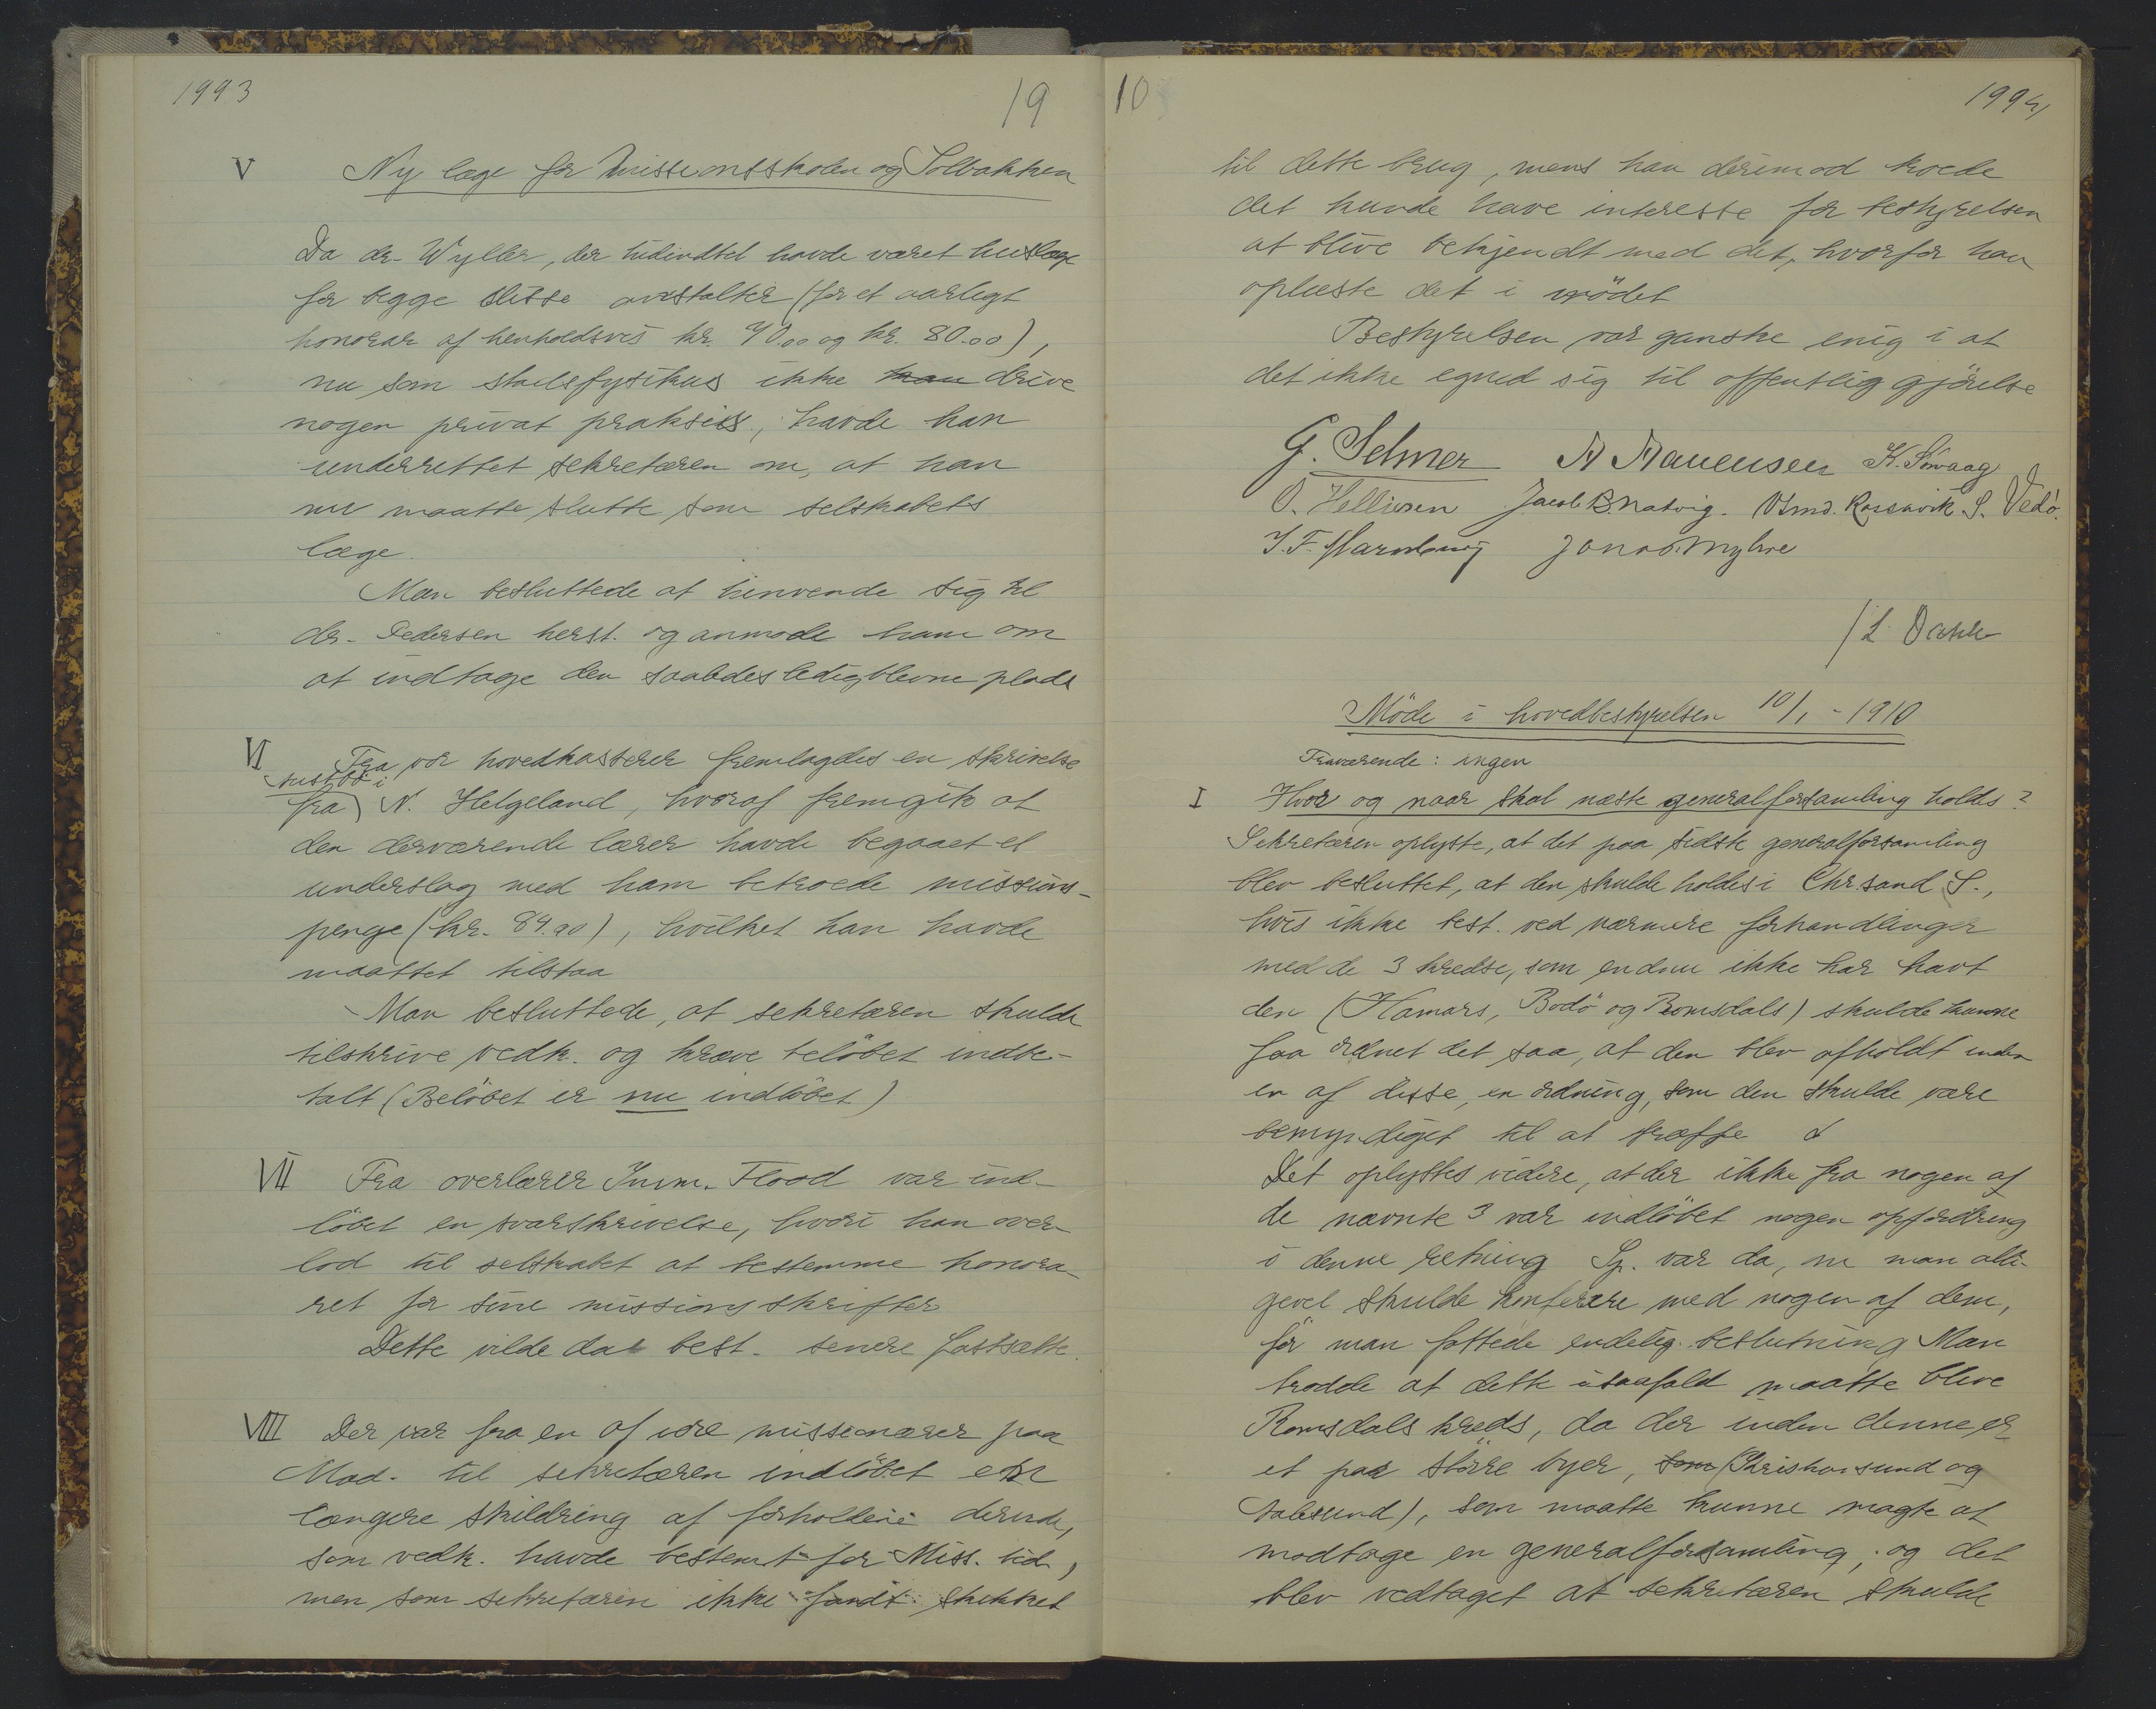 1993
19
V Ny læge for Missionsskolen og Solbakken
Da dr. Wyller, der hidindtil havde været huslæge
for begge disse anstalter (for et aarligt
honorar af henholdsvis kr. 70.00 og kr. 80.00),
nu som stadsfysikus ikke kan drive
nogen privat praksis, havde han
underrettet sekretæren om, at han
nu maatte slutte som selskabets
læge.
Man besluttede at henvende sig til
dr. Pedersen herst. og anmode ham om
at indtage den saaledes ledigblevne plads
VI Fra vor hovedkasserer fremlagdes en skrivelse
fra i N. Helgeland, hvoraf fremgik at
den derværende lærer havde begaaet et
underslag med ham betroede missions-
penge (kr. 84.90), hvilket han havde
maattet tilstaa
Man besluttede, at sekretæren skulde
tilskrive vedk. og kræve beløbet indbe-
talt (Beløbet er nu indløbet)
VII Fra overlærer Imm. Flood var ind-
løbet en svarskrivelse, hvori han over-
lod til selskabet at bestemme honora-
ret for sine missionsskrifter
Dette vilde da best. senere fastsætte.
VIII Der var fra en af vore missionærer paa
Mad. til sekretæren indløbet en
længere skildring af forholdene derude,
som vedk. havde bestemt for Miss. tid.,
men som sekretæren ikke fandt skikket
10
1994
til dette brug, mens han derimod troede
det kunde have interesse for bestyrelsen
at blive bekjendt med det, hvorfor han
oplæste det i mødet
Bestyrelsen var ganske enig i at
det ikke egned sig til offentliggjørelse
G. Selmer A Aanensen K. Sivaag
O. Helliesen Jacob B. Natvig. Osmd. Rossavik S. Vedø.
J. F. Jonas Myhre
/L. Dahle
Møde i hovedbestyrelsen 10/1 - 1910
Fraværende: ingen
I Hvor og naar skal næste generalforsamling holdes?
Sekretæren oplyste, at det paa sidste generalforsamling
blev besluttet, at den skulde holdes i Chr.sand S.,
hvis ikke best. ved nærmere forhandlinger
med de 3 kredse, som endnu ikke har havt
den (Hamars, Bodø og Romsdals) skulde kunne
faa ordnet det saa, at den blev afholdt inden
en af disse, en ordning, som den skulde være
bemyndiget til at træffe
Det oplystes videre, at der ikke fra nogen af
de nævnte 3 var indløbet nogen opfordring
i denne retning Sp. var da, om man alli-
gevel skulde konferere med nogen af dem,
før man fattede endelig beslutning Man
trodde at dette i saafald maatte blive
Romsdals kreds, da der inden denne er
et par større byer, som (Christiansund og
Aalesund), som maatte kunne magte at
modtage en generalforsamling; og det
blev vedtaget at sekretæren skulde